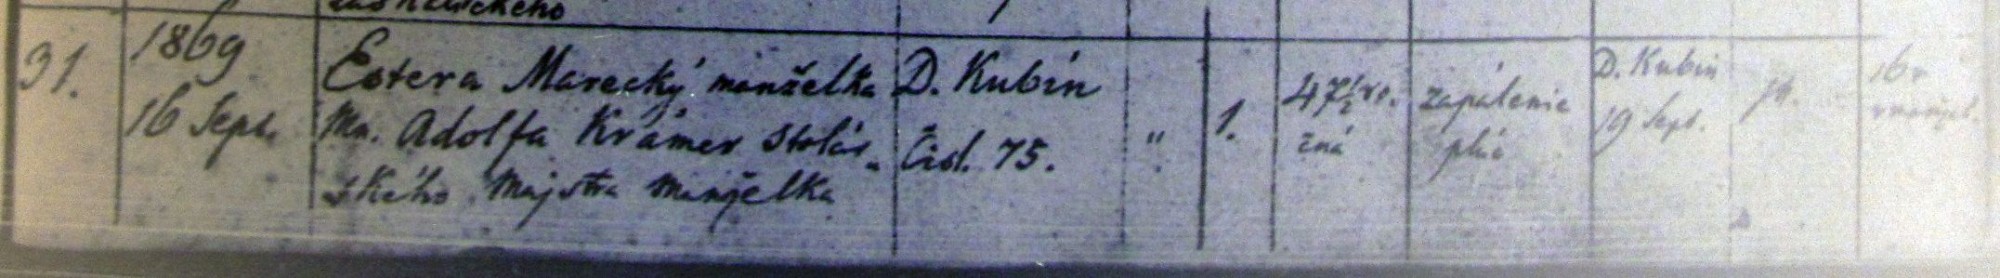 31.
1869
16 Sept.
Estera Marecký manželka
Mn. Adolfa Krámer stolár-
ského Majstra Manželka
D. Kubín
Čisl. 75.
"
1.
47½ ro.
žná
zapálenie
plúc
D. Kubín
19 Sept.
16